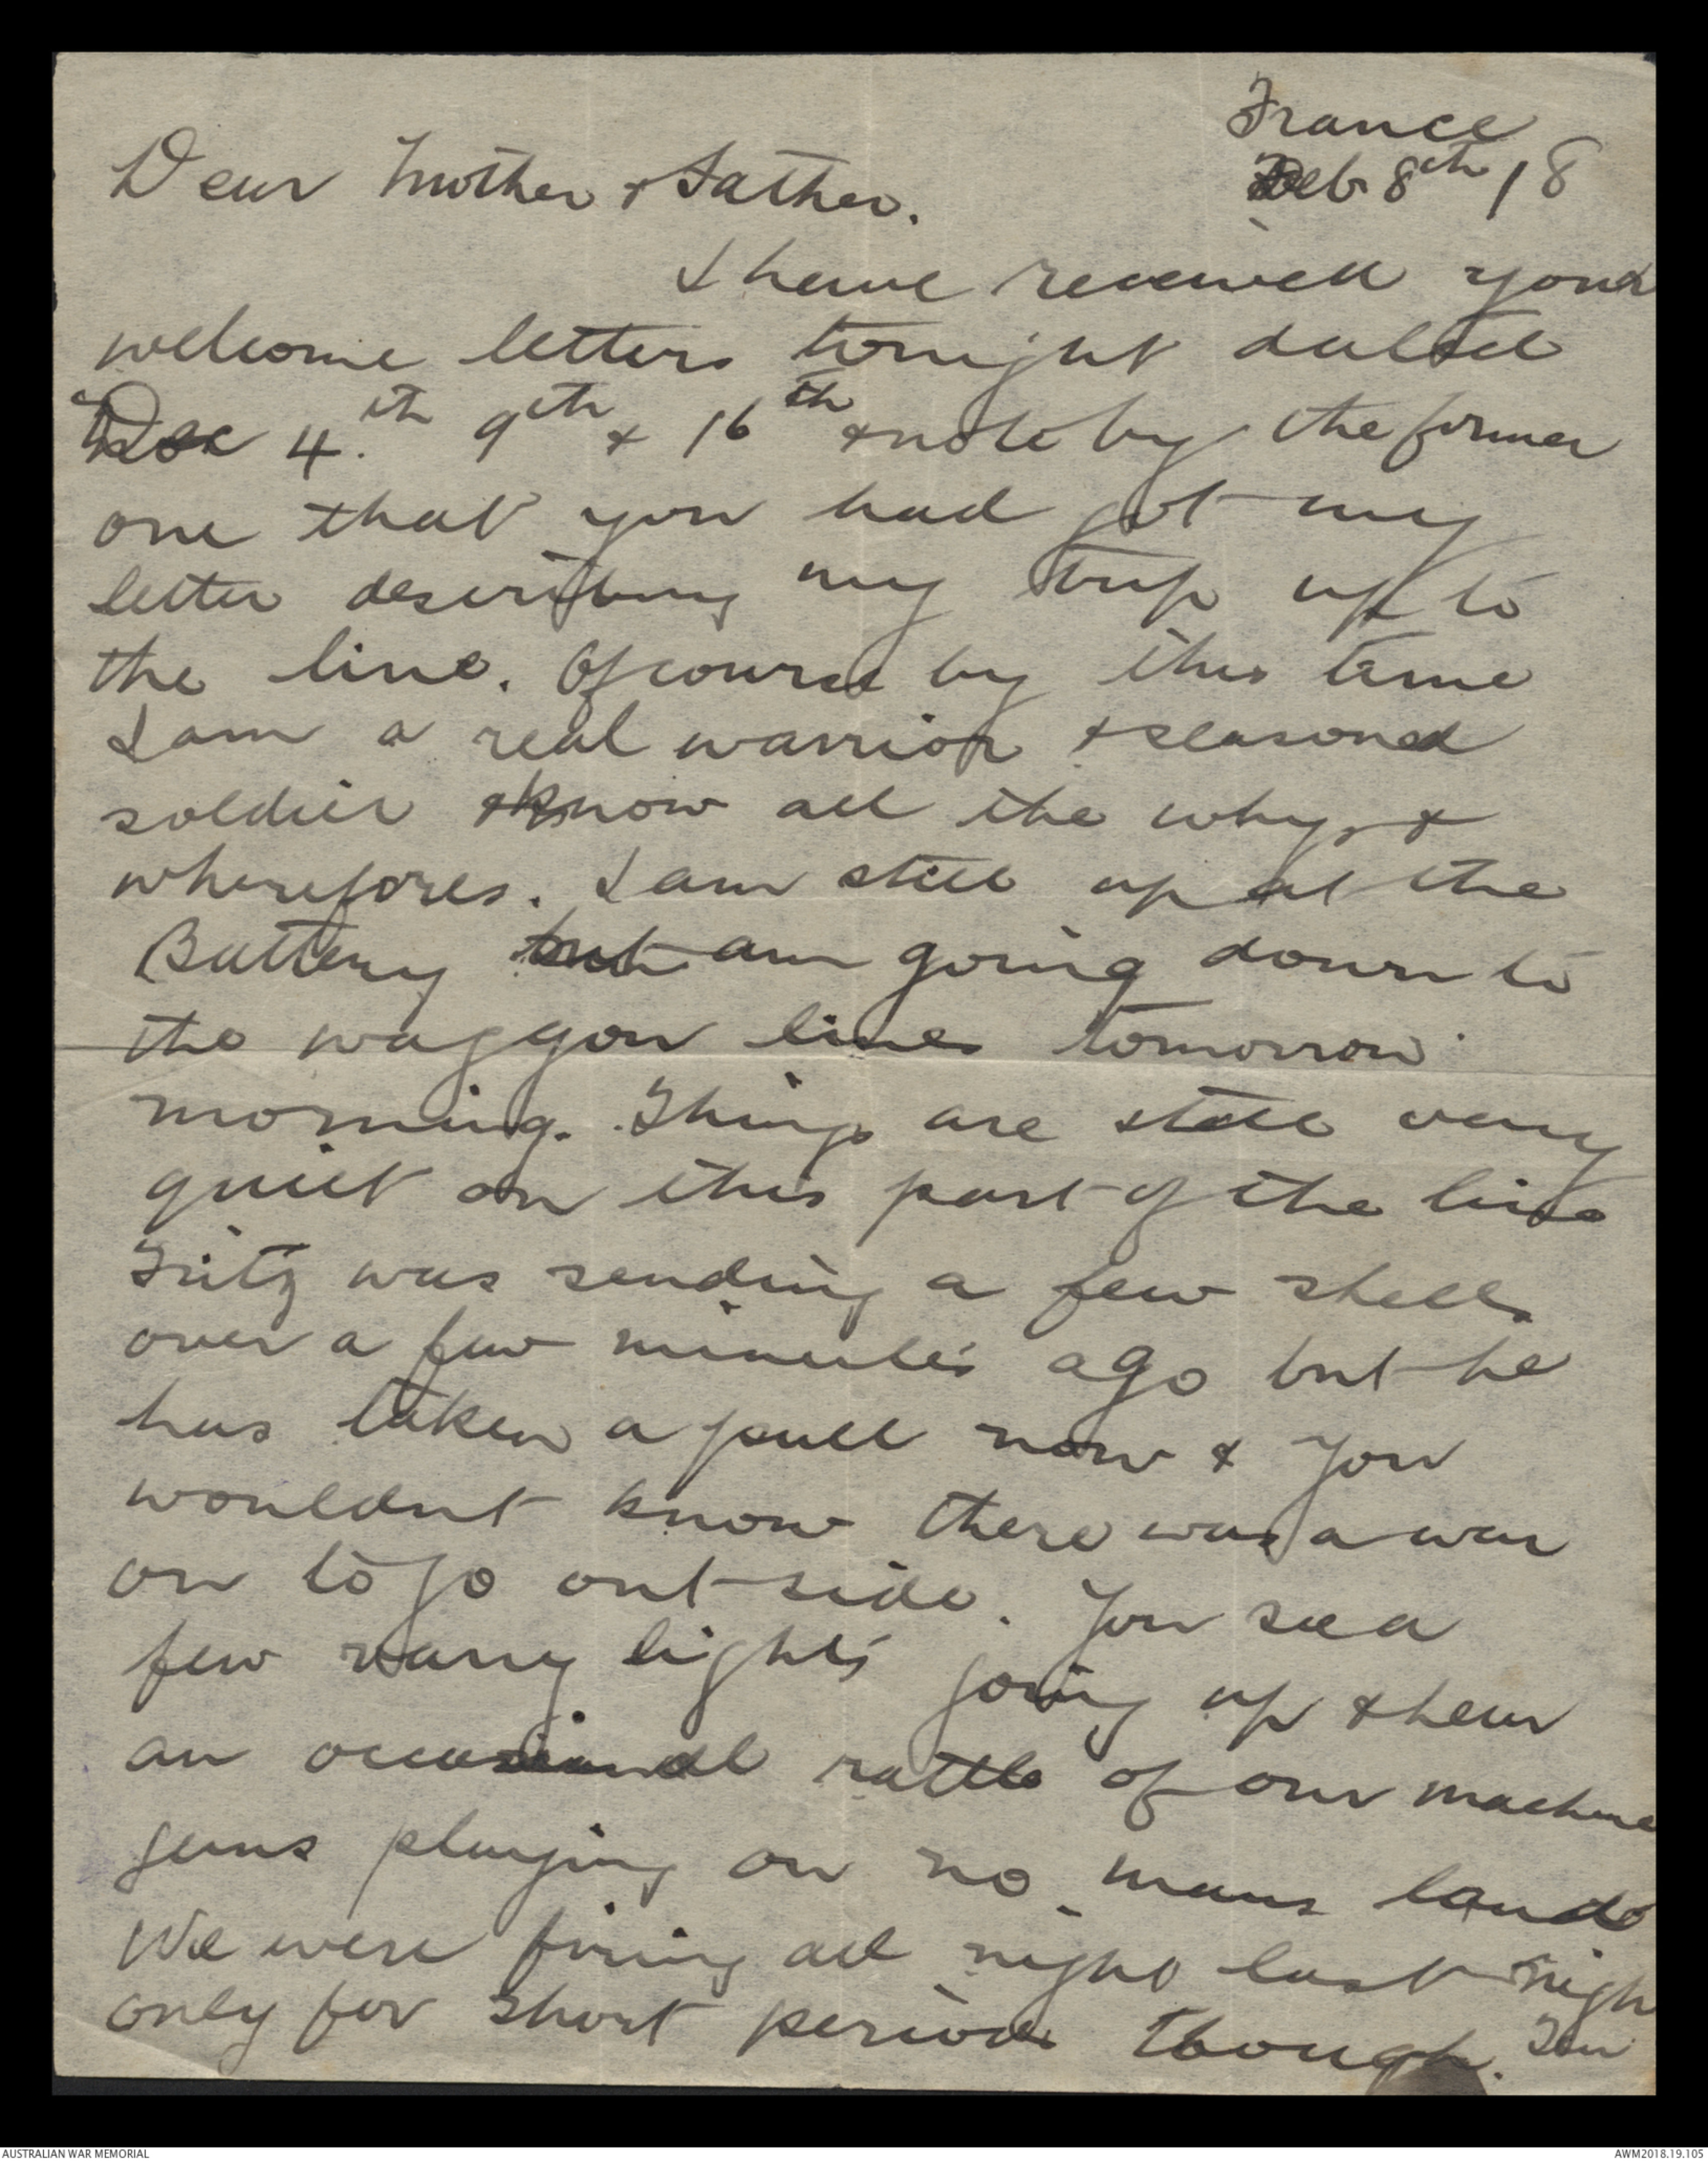 France
Feb 8th 18
Dear Mother & Father.
I have received your
welcome letters tonight dated
Dec 4.th 9th & 16th & note by the former
one that you had got my
letter describing my trip up to
the line. Of course by this time
I am a real warrior & seasoned
soldier & know all the whys &
wherefores. I am still up at the
Battery but am going down to
the waggon lines tomorrow
morning. Things are still very
quiet on this part of the line
Fritz was sending a few shells
over a few minutes ago but he
has taken a pull now & you
wouldnt know there was a war
on to go outside. You see a
few varey lights going up & hear
an occasional rattle of our machine
guns playing on no mans land
We were firing all night last nigh
only for short periods though.
AUSTRALIAN WAR MEMORIAL
AWM2018.19.105